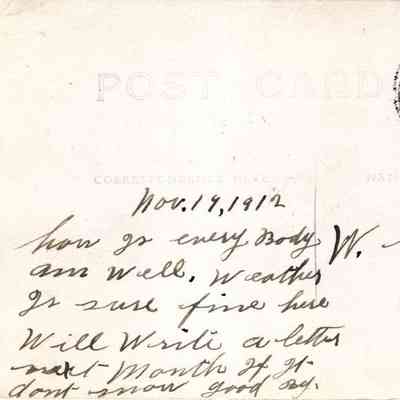 POST CARD
CORRESPONDENCE HERE
Nov. 19, 1912
how Is every Body W.
am well. Weather
Is sure fine here
Will Write a letter
next Month If It
dont snow good By.